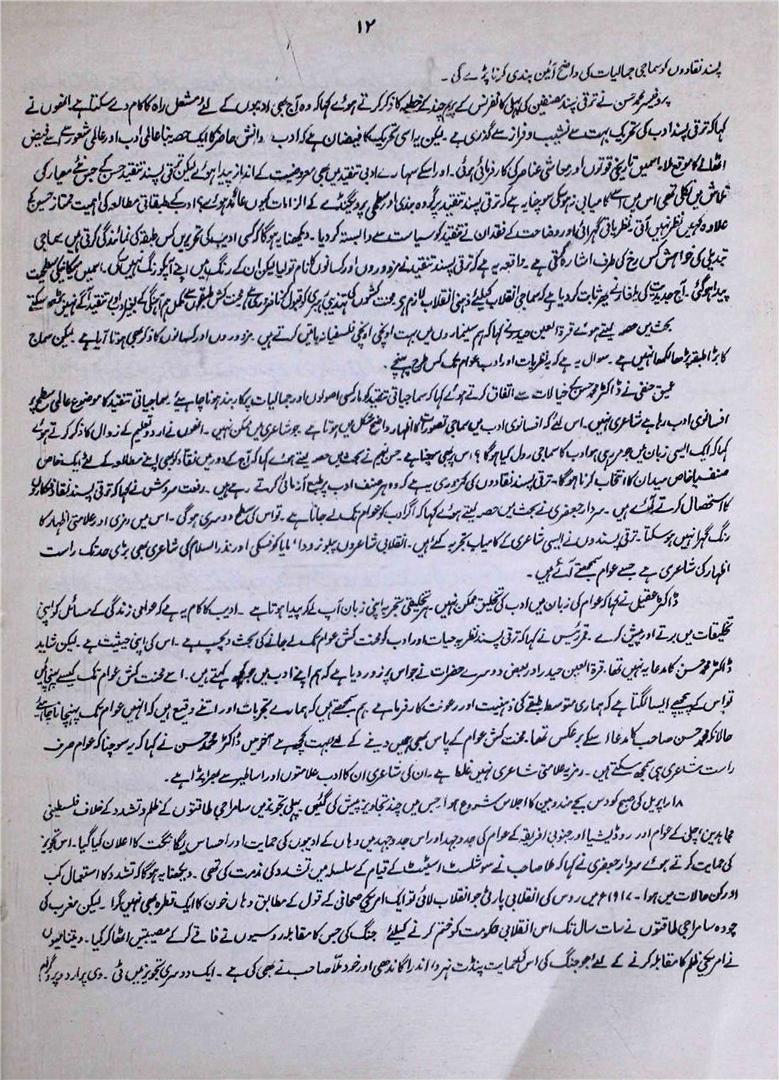 ۱۲
پسند نقادوں کو سماجی جمالیات کی واضح آئین بندی کرنا پڑے گی۔
پروفیسر محمد حسن نے ترقی پسند مصنفین کی پہلی کانفرنس کے پریم چند کے خطبے کا ذکر کرتے ہوئے کہا کہ وہ آج بھی ادیبوں کے لئے مشعل راہ کا کام دے سکتا ہے انھوں نے
کہا کہ ترقی پسند ادب کی تحریک بہت سے نشیب و فراز سے گذری ہے۔ لیکن یہ اسی تحریک کا فیضان ہے کہ ادب دانش حاضر کا ایک حصہ بنا عالمی ادب اور عالمی شعور سے اسے فیض
اٹھانے کا موقع ملا۔ اسمیں تاریخی قوتوں اور معاشی عناصر کی کارفرمائی ہوئی۔ اور اسکے سہارے ادبی تنقید میں بھی معروضیت کے انداز پیدا ہوئے لیکن ترقی پسند تنقید جس نئے معیار کی
تلاش میں نکلی تھی اس میں اسے کامیابی نہ ہوسکی سوچنا یہ ہے کہ ترقی پسند تنقید پر گروہ بندی اور سطحی پروپیگنڈے کے الزامات کیوں عائد ہوئے؟ ادب کے طبقاتی مطالعہ کی اہمیت ممتاز حسین کے
علاوہ کہیں نظر نہیں آتی۔ نظریاتی گہرائی اور وضاحت کے فقدان نے تنقید کو سیاست سے وابستہ کر دیا۔ دیکھنا یہ ہوگا کہ کسی ادیب کی تحریریں کس طبقہ کی نمائندگی کرتی ہیں سماجی
تبدیلی کی خواہش کس رخ کی طرف اشارہ کرتی ہے۔ واقعہ یہ ہے کہ ترقی پسند تنقید نے مزدوروں اور کسانوں کا نام تو لیا لیکن ان کے رنگ میں اپنے آپکو رنگ نہیں سکی۔ اسمیں میکانیکی سطحیت
پیدا ہوگئی۔ آج جدیدیت کی یلغار نے پھر ثابت کر دیا ہے کہ سماجی انقلاب کیلئے ذہنی انقلاب لازم ہے محنت کشوں کی تہذیبی رہبری کو قبول کرنا ضروری ہے محنت کش طبقوں سے مکمل ہم آہنگی کے بغیر ادب اور تنقید آگے نہیں بڑھ سکتے
بحث میں حصہ لیتے ہوئے قرۃ العین حیدر نے کہا کہ ہم سیمیناروں میں بہت اونچی اونچی فلسفیانہ باتیں کرتے ہیں۔ مزدوروں اور کسانوں کا ذکر بھی ہوتا آیا ہے۔ لیکن سماج
کا بڑا طبقہ پڑھا لکھا نہیں ہے۔ سوال یہ ہے کہ نظریات اور ادب عوام تک کس طرح پہنچے۔
عمیق حنفی نے ڈاکٹر محمد حسن کے خیالات سے اتفاق کرتے ہوئے کہا کہ سماجیاتی تنقید کو مارکسی اصولوں اور جمالیات پر کاربند ہونا چاہیے۔ سماجیاتی تنقید کا موضوع عالمی سطح پر
افسانوی ادب رہا ہے شاعری نہیں۔ اس لئے کہ افسانوی ادب میں سماجی تصورات کا اظہار واضح شکل میں ہوتا ہے۔ جو شاعری میں ممکن نہیں۔ انھوں نے اردو تعلیم کے زوال کا ذکر کرتے ہوئے
کہا کہ ایک ایسی زبان میں جو مر رہی ہو ادب کا سماجی رول کیا ہوگا؟ اس پر بھی سوچنا ہے۔ حسن نعیم نے بحث میں حصہ لیتے ہوئے کہا کہ آج کے دور میں نقاد کو بھی اپنے مطالعہ کے لئے ایک خاص
صنف یا خاص میدان کا انتخاب کرنا ہوگا۔ ترقی پسند نقادوں کی کمزوری یہ ہے کہ وہ ہر صنف ادب پر طبع آزمائی کرتے رہے ہیں۔ رفعت سروش نے کہا کہ ترقی پسند نقاد فنکاروں
کا استحصال کرتے آئے ہیں۔ سردار جعفری نے بحث میں حصہ لیتے ہوئے کہا کہ اگر ادب کو عوام تک لے جانا ہے۔ تو اس کی سطح دوسری ہوگی۔ اس میں رمزی اور علامتی اظہار کا
رنگ گہرا نہیں ہوسکتا۔ ترقی پسندوں نے ایسی شاعری کے کامیاب تجربہ کئے ہیں۔ انقلابی شاعروں پبلو نرودا، مایا کوفسکی اور نذرالسلام کی شاعری بھی بڑی حد تک راست
اظہار کی شاعری ہے جسے عوام سمجھتے آئے ہیں۔
ڈاکٹر عقیل نے کہا کہ عوام کی زبان میں ادب کی تخلیق ممکن نہیں۔ ہر تخلیقی تجربہ اپنی زبان آپ لے کر پیدا ہوتا ہے۔ ادیب کا کام یہ ہے کہ عوامی زندگی کے مسائل کو اپنی
تخلیقات میں برتے اور پیش کرے۔ قمر رئیس نے کہا کہ ترقی پسند نظریہ حیات اور ادب کو محنت کش عوام تک لے جانے کی بحث دلچسپ ہے۔ اس کی اپنی حیثیت ہے۔ لیکن شاید
ڈاکٹر محمد حسن کا مدعا یہ نہیں تھا۔ قرۃ العین حیدر اور بعض دوسرے حضرات نے جو اس پر زور دیا ہے کہ ہم اپنے ادب میں جو کچھ کہتے ہیں۔ اسے محنت کش عوام تک کیسے پہنچائیں
تو اس کے پیچھے ایسا لگتا ہے کہ ہماری متوسط طبقے کی ذہنیت اور رعونت کارفرما ہے۔ ہم سمجھتے ہیں کہ ہمارے تجربات اور اتنے وقیع ہیں کہ انہیں عوام تک پہنچانا چاہئے
حالانکہ محمد حسن صاحب کا مدعا اسکے برعکس تھا۔ محنت کش عوام کے پاس بھی ہمیں دینے کے لئے بہت کچھ ہے آخر میں ڈاکٹر محمد حسن نے کہا کہ یہ سوچنا کہ عوام صرف
راست شاعری ہی سمجھ سکتے ہیں۔ رمزیہ علامتی شاعری نہیں غلط ہے۔ ان کی شاعری ان کا ادب علامتوں اور اساطیر سے بھرا پڑا ہے۔
۱۸ اپریل کی صبح کو دس بجے مندوبین کا اجلاس شروع ہوا جس میں چند تجاویز پیش کی گئیں۔ پہلی تجویز میں سامراجی طاقتوں کے ظلم و تشدد کے خلاف فلسطینی
مجاہدین، چلی کے عوام اور روڈیشیا اور جنوبی افریقہ کے عوام کی جدوجہد اور اس جدوجہد میں وہاں کے ادیبوں کی حمایت اور احساس یگانگت کا اعلان کیا گیا۔ اس تجویز
کی حمایت کرتے ہوئے سردار جعفری نے کہا کہ ملا صاحب نے سوشلسٹ اسٹیٹ کے قیام کے سلسلہ میں تشدد کی مذمت کی تھی۔ دیکھنا یہ ہوگا کہ تشدد کا استعمال کب
اور کن حالات میں ہوا۔ ۱۹۱۷ء میں روس کی انقلابی پارٹی جو انقلاب لائی تو ایک امریکی صحافی کے قول کے مطابق وہاں خون کا ایک قطرہ بھی نہیں گرا۔ لیکن مغرب کی
چودہ سامراجی طاقتوں نے سات سال تک اس انقلابی حکومت کو ختم کرنے کیلئے جنگ کی جس کا مقابلہ روسیوں نے فاقے کر کے مصیبتیں اٹھا کر کیا۔ ویتنامیوں
نے امریکی ظلم کا مقابلہ کرنے کے لئے جو جنگ کی اس کی حمایت پنڈت نہرو اندرا گاندھی اور خود ملا صاحب نے بھی کی ہے۔ ایک دوسری تجویز میں ٹی۔ وی پر اردو پروگرام